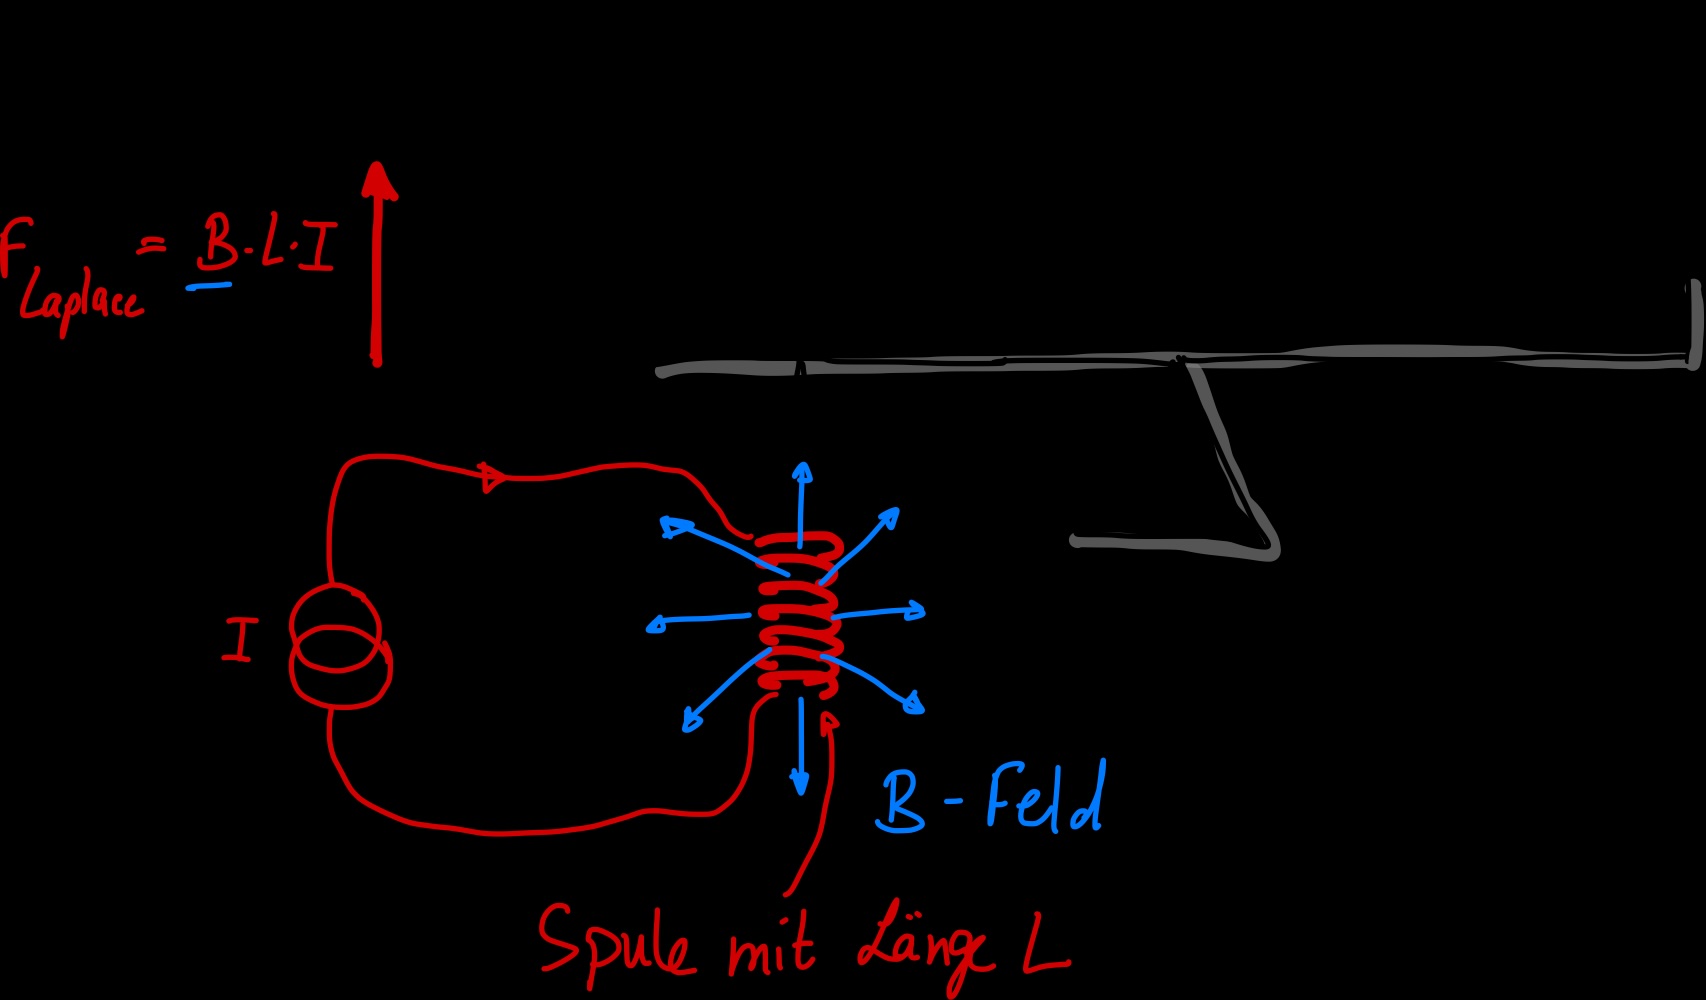 F_Laplace = B · L · I
I
B - Feld
Spule mit Länge L